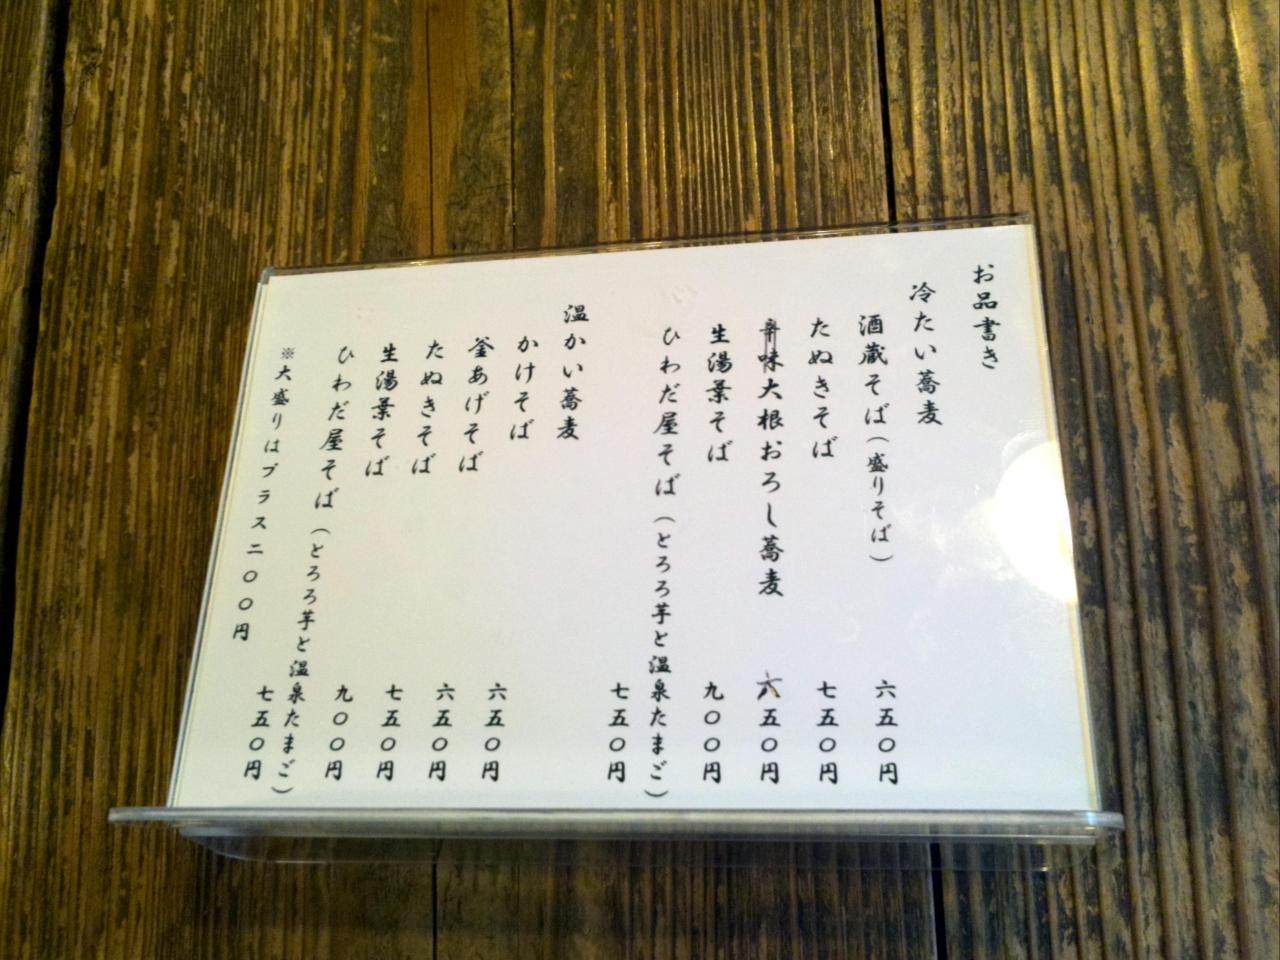 お品書き
冷たい蕎麦
酒蔵そば（盛りそば） 六五〇円
たぬきそば 七五〇円
味大根おろし蕎麦 五〇円
生湯葉そば 九〇〇円
ひわだ屋そば（とろろ芋と温泉たまご）
七五〇円
温かい蕎麦
かけそば 六五〇円
釜あげそば 六五〇円
たぬきそば 七五〇円
生湯葉そば 九〇〇円
ひわだ屋そば（とろろ芋と温泉たまご）
七五〇円
※大盛りはプラス二〇〇円